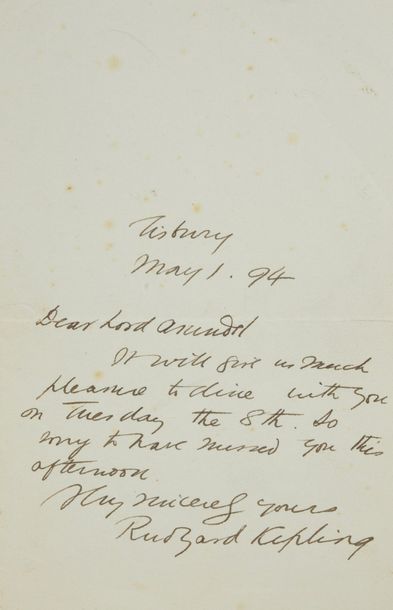 Tisbury
May 1. 94
Dear Lord Arundel
It will give us much
pleasure to dine with you
on Tuesday the 8th. So
sorry to have missed you this
afternoon.
Very sincerely yours
Rudyard Kipling